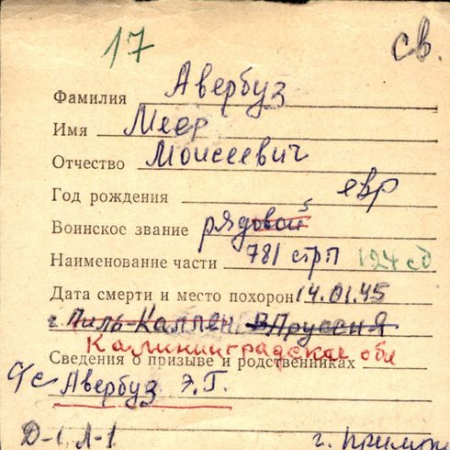 17 св.
Фамилия Авербуз
Имя Меер
Отчество Моисеевич
Год рождения евр
Воинское звание рядовой
Наименование части 781 стрп 124 сд
Дата смерти и место похорон 14.01.45
г. Пиль-Каллен В Пруссия
Калининградская обл
Сведения о призыве и родственниках
Авербуз Э.Г.
Д-1, Л-1